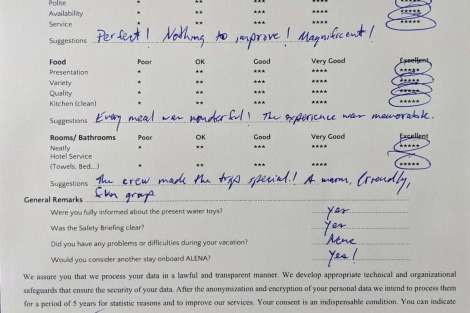 Polite * ** *** **** *****
Availability * ** *** **** *****
Service * ** *** **** *****
Suggestions Perfect! Nothing to improve! Magnificent!
Food Poor OK Good Very Good Excellent
Presentation * ** *** **** *****
Variety * ** *** **** *****
Quality * ** *** **** *****
Kitchen (clean) * ** *** **** *****
Suggestions Every meal was wonderful! The experience was memorable.
Rooms/ Bathrooms Poor OK Good Very Good Excellent
Neatly * ** *** **** *****
Hotel Service
(Towels, Bed...) * ** *** **** *****
Suggestions The crew made the trip special! A warm, friendly,
fun group
General Remarks
Were you fully informed about the present water toys? Yes
Was the Safety Briefing clear? Yes
Did you have any problems or difficulties during your vacation? None
Would you consider another stay onboard ALENA? Yes!
We assure you that we process your data in a lawful and transparent manner. We develop appropriate technical and organizational
safeguards that ensure the security of your data. After the anonymization and encryption of your personal data we intend to process them
for a period of 5 years for statistic reasons and to improve our services. Your consent is an indispensable condition. You can indicate